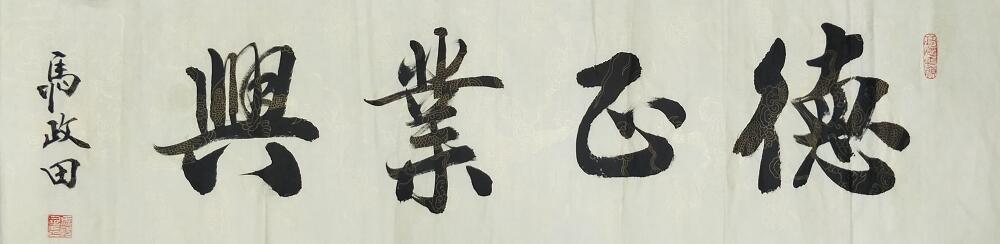 德正業興
馬政田